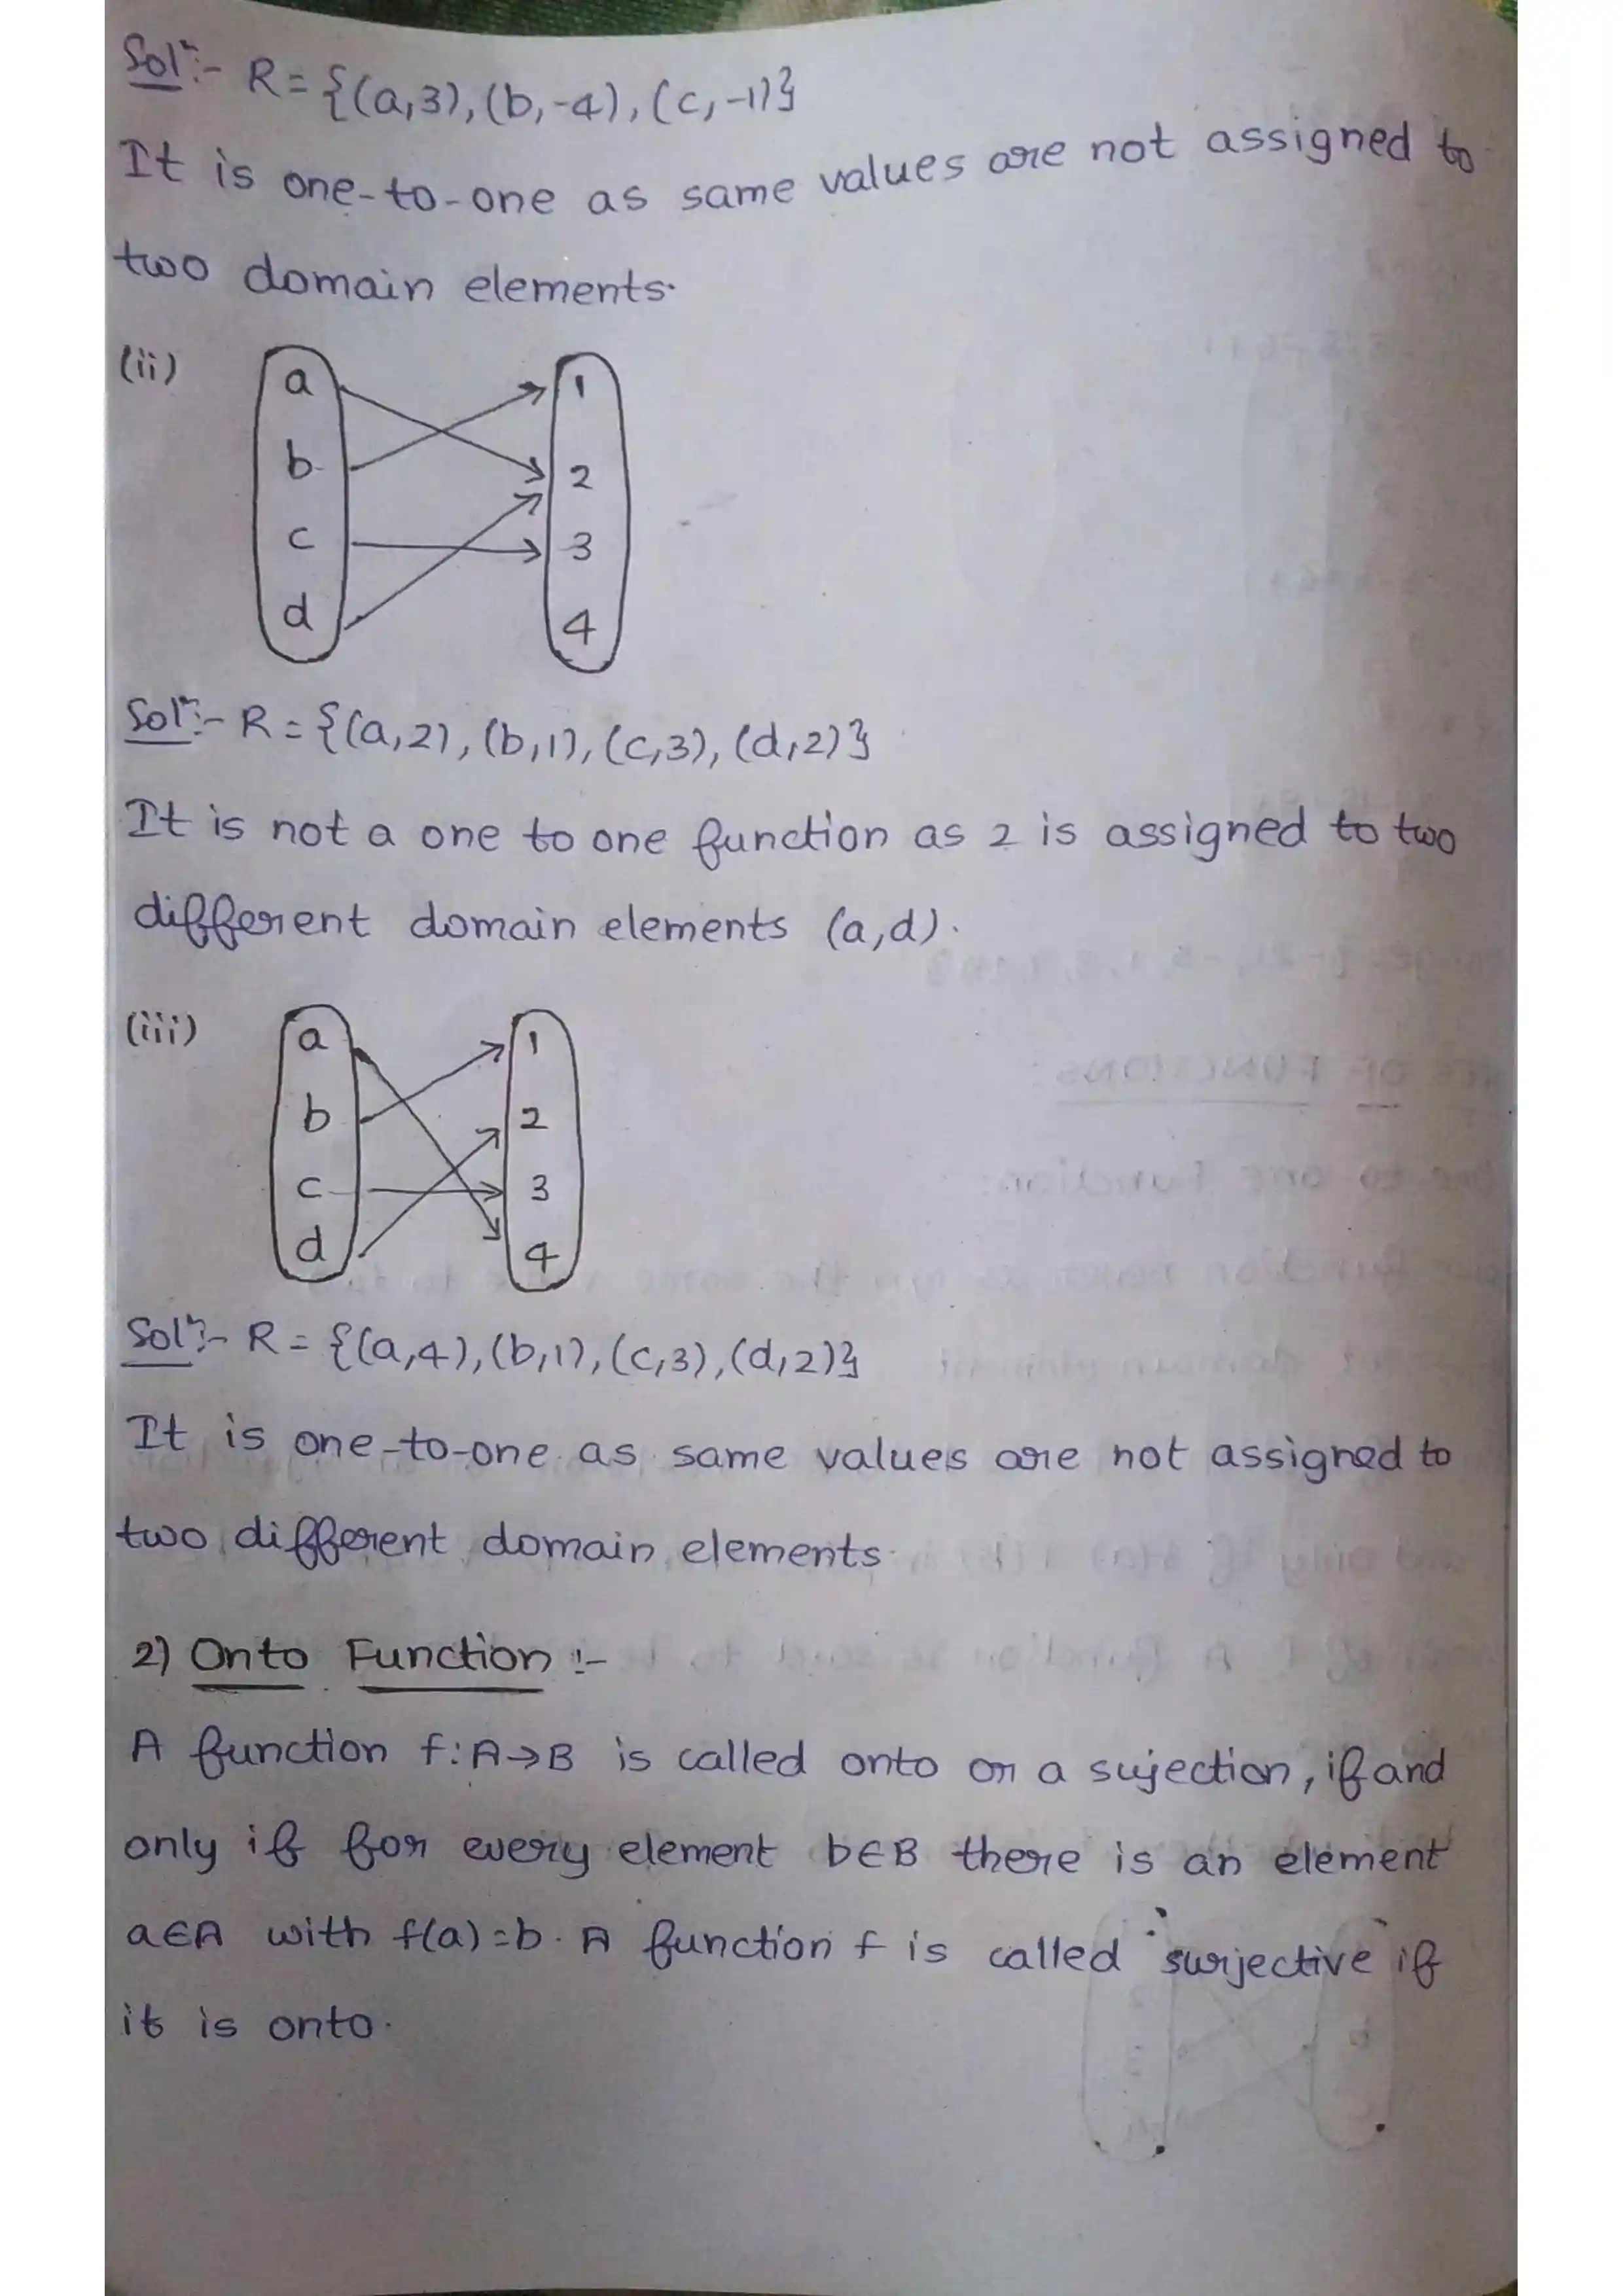 Solⁿ:- R = {(a,3), (b,-4), (c,-1)}
It is one-to-one as same values are not assigned to
two domain elements.
(ii)
a
b
c
d
1
2
3
4
Solⁿ:- R = {(a,2), (b,1), (c,3), (d,2)}
It is not a one to one function as 2 is assigned to two
different domain elements (a,d).
(iii)
a
b
c
d
1
2
3
4
Solⁿ:- R = {(a,4), (b,1), (c,3), (d,2)}
It is one-to-one as same values are not assigned to
two different domain elements.
2) Onto Function :-
A function f:A→B is called onto or a sujection, if and
only if for every element b∈B there is an element
a∈A with f(a)=b. A function f is called surjective if
it is onto.